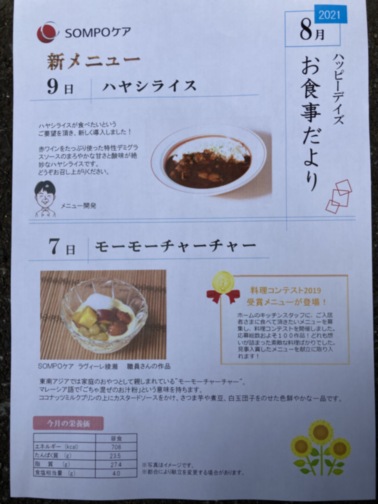 SOMPOケア
2021
8月
ハッピーデイズ
お食事だより
新メニュー
9日 ハヤシライス
ハヤシライスが食べたいという
ご要望を頂き、新しく導入しました！
赤ワインをたっぷり使った特性デミグラ
スソースのまろやかな甘さと酸味が絶
妙なハヤシライスです。
どうぞお召し上がりください。
メニュー開発
7日 モーモーチャーチャー
SOMPOケア ラヴィーレ綾瀬 職員さんの作品
料理コンテスト2019
受賞メニューが登場！
ホームのキッチンスタッフに、ご入居
者さまに食べて頂きたいメニューを募
集し、料理コンテストを開催しました。
応募総数およそ100作品！どれも想
いが詰まった素敵な料理ばかりでした。
見事入賞したメニューを献立に取り入
れます！
東南アジアでは家庭のおやつとして親しまれている“モーモーチャーチャー”。
マレーシア語で「ごちゃ混ぜのお汁粉」という意味を持ちます。
ココナッツミルクプリンの上にカスタードソースをかけ、さつま芋や素豆、白玉団子をのせた色鮮やかな一品です。
今月の栄養価
昼食
エネルギー (kcal) 708
たんぱく質 (g) 23.5
脂 質 (g) 27.4
食塩相当量 (g) 4.0
※写真はイメージです。
※都合により献立を変更する場合があります。